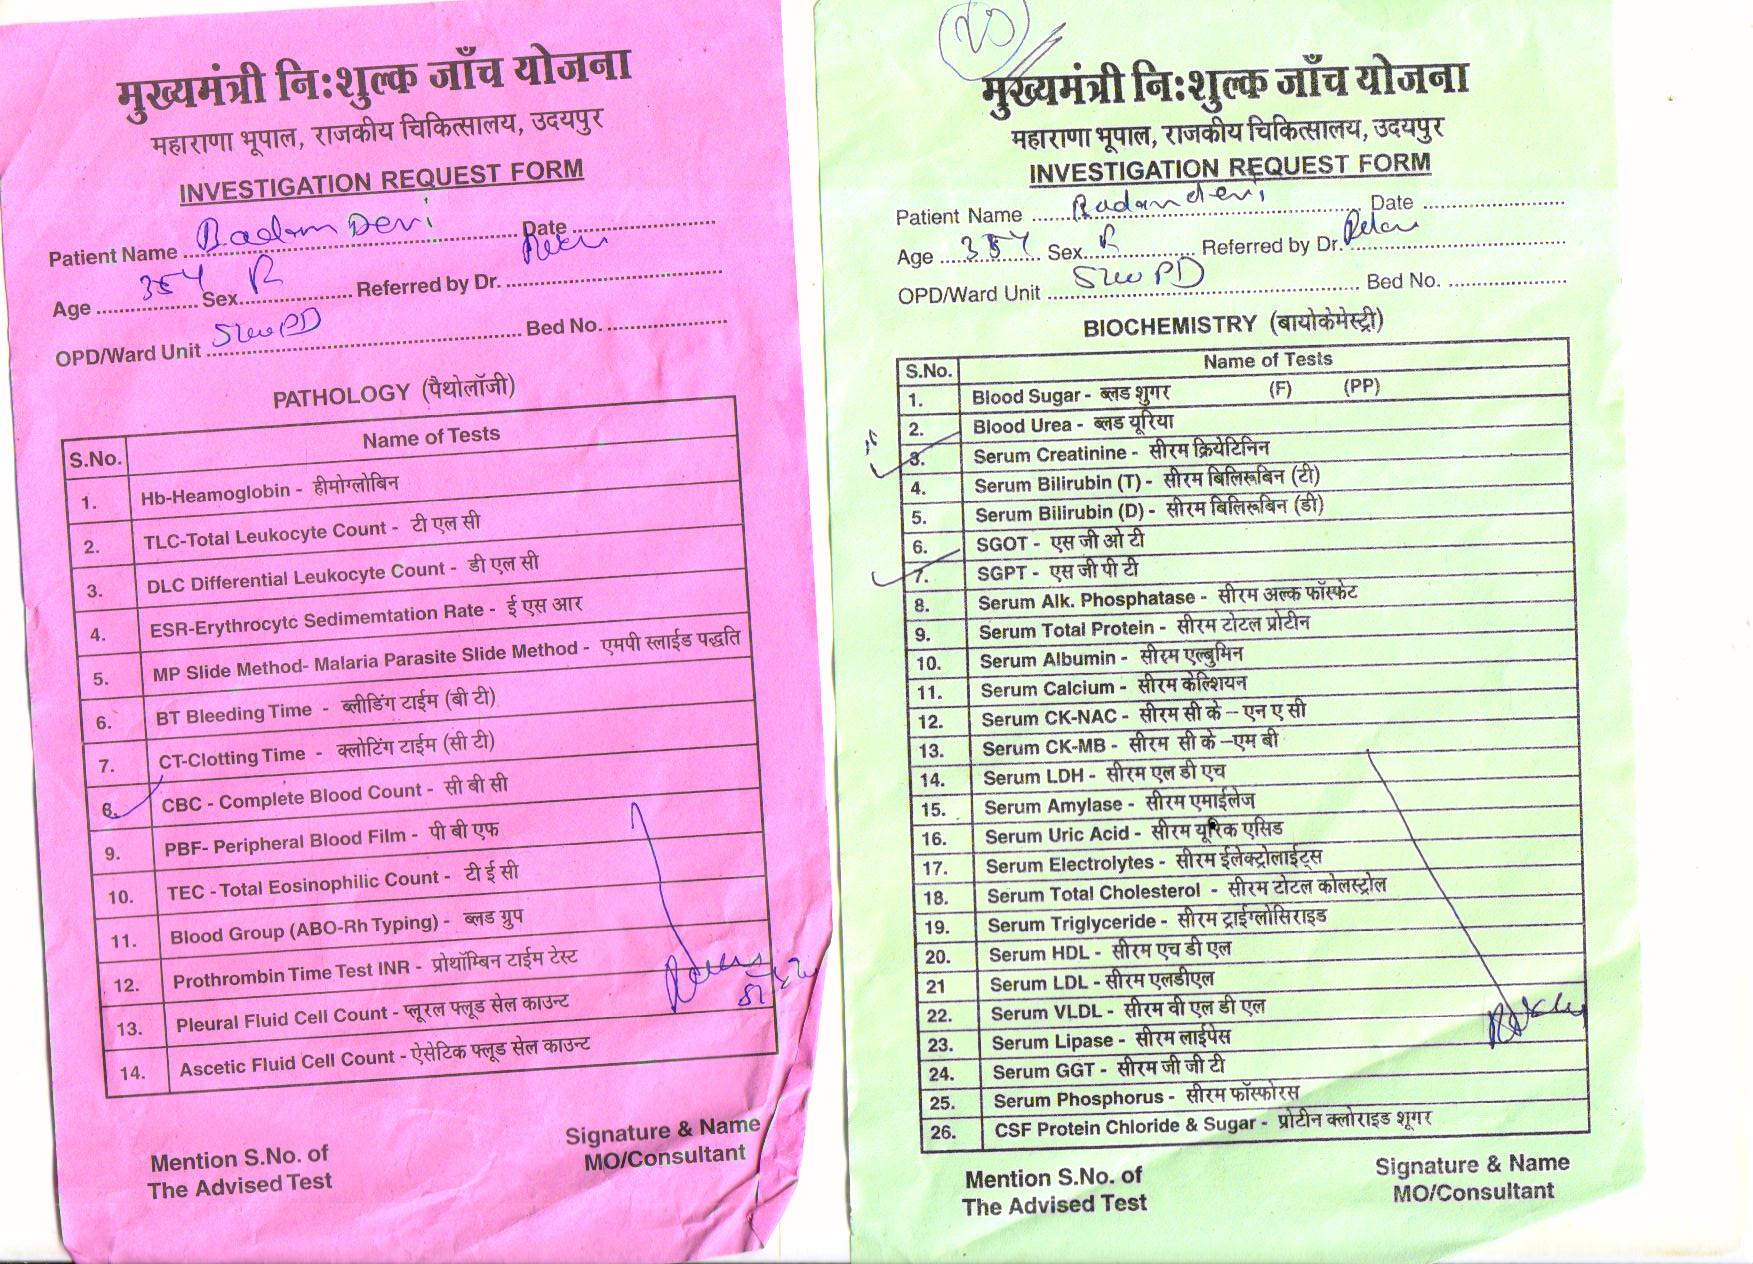 मुख्यमंत्री नि:शुल्क जाँच योजना
महाराणा भूपाल, राजकीय चिकित्सालय, उदयपुर
INVESTIGATION REQUEST FORM
Patient Name Badam Devi Date
Age 35Y Sex Referred by Dr.
OPD/Ward Unit Bed No.
PATHOLOGY (पैथोलॉजी)
S.No. Name of Tests
1. Hb-Heamoglobin - हीमोग्लोबिन
2. TLC-Total Leukocyte Count - टी एल सी
3. DLC Differential Leukocyte Count - डी एल सी
4. ESR-Erythrocytc Sedimemtation Rate - ई एस आर
5. MP Slide Method- Malaria Parasite Slide Method - एमपी स्लाईड पद्धति
6. BT Bleeding Time - ब्लीडिंग टाईम (बी टी)
7. CT-Clotting Time - क्लोटिंग टाईम (सी टी)
8. CBC - Complete Blood Count - सी बी सी
9. PBF- Peripheral Blood Film - पी बी एफ
10. TEC - Total Eosinophilic Count - टी ई सी
11. Blood Group (ABO-Rh Typing) - ब्लड ग्रुप
12. Prothrombin Time Test INR - प्रोथॉम्बिन टाईम टेस्ट
13. Pleural Fluid Cell Count - प्लूरल फ्लूड सेल काउन्ट
14. Ascetic Fluid Cell Count - ऐसेटिक फ्लूड सेल काउन्ट
Mention S.No. of
The Advised Test
Signature & Name
MO/Consultant
मुख्यमंत्री नि:शुल्क जाँच योजना
महाराणा भूपाल, राजकीय चिकित्सालय, उदयपुर
INVESTIGATION REQUEST FORM
Patient Name Badam devi Date
Age 35Y Sex Referred by Dr.
OPD/Ward Unit Bed No.
BIOCHEMISTRY (बायोकेमेस्ट्री)
S.No. Name of Tests
1. Blood Sugar - ब्लड शुगर (F) (PP)
2. Blood Urea - ब्लड यूरिया
3. Serum Creatinine - सीरम क्रियेटिनिन
4. Serum Bilirubin (T) - सीरम बिलिरूबिन (टी)
5. Serum Bilirubin (D) - सीरम बिलिरूबिन (डी)
6. SGOT - एस जी ओ टी
7. SGPT - एस जी पी टी
8. Serum Alk. Phosphatase - सीरम अल्क फॉस्फेट
9. Serum Total Protein - सीरम टोटल प्रोटीन
10. Serum Albumin - सीरम एल्बुमिन
11. Serum Calcium - सीरम केल्शियन
12. Serum CK-NAC - सीरम सी के – एन ए सी
13. Serum CK-MB - सीरम सी के –एम बी
14. Serum LDH - सीरम एल डी एच
15. Serum Amylase - सीरम एमाईलेज
16. Serum Uric Acid - सीरम यूरिक एसिड
17. Serum Electrolytes - सीरम ईलेक्ट्रोलाईट्स
18. Serum Total Cholesterol - सीरम टोटल कोलस्ट्रोल
19. Serum Triglyceride - सीरम ट्राईग्लोसिराइड
20. Serum HDL - सीरम एच डी एल
21 Serum LDL - सीरम एलडीएल
22. Serum VLDL - सीरम वी एल डी एल
23. Serum Lipase - सीरम लाईपेस
24. Serum GGT - सीरम जी जी टी
25. Serum Phosphorus - सीरम फॉस्फोरस
26. CSF Protein Chloride & Sugar - प्रोटीन क्लोराइड शूगर
Mention S.No. of
The Advised Test
Signature & Name
MO/Consultant